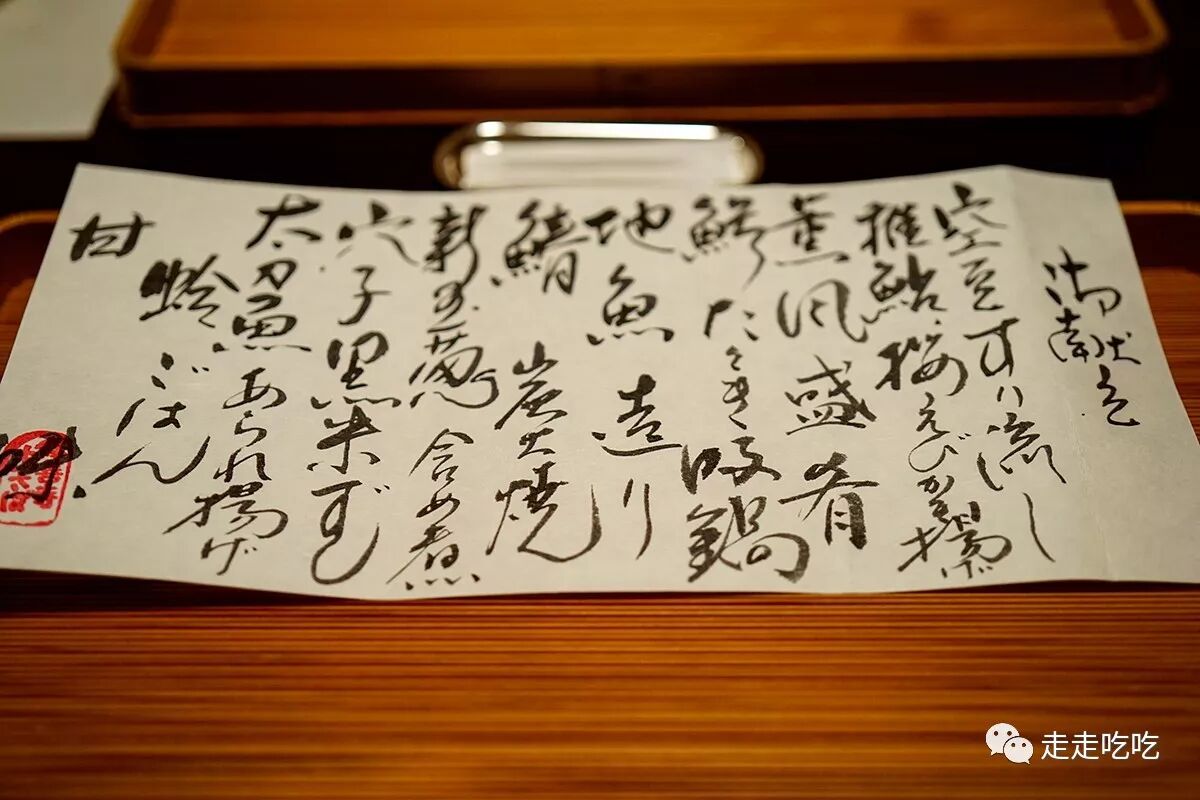 御献立
空豆すり流し
稚鮎、桜えびかき揚げ
薫風盛肴
たゝき 鍋
地魚 造り
鯖 炭火焼
新 含め煮
穴子黒米ずし
太刀魚あられ揚げ
ごはん
甘味
走走吃吃